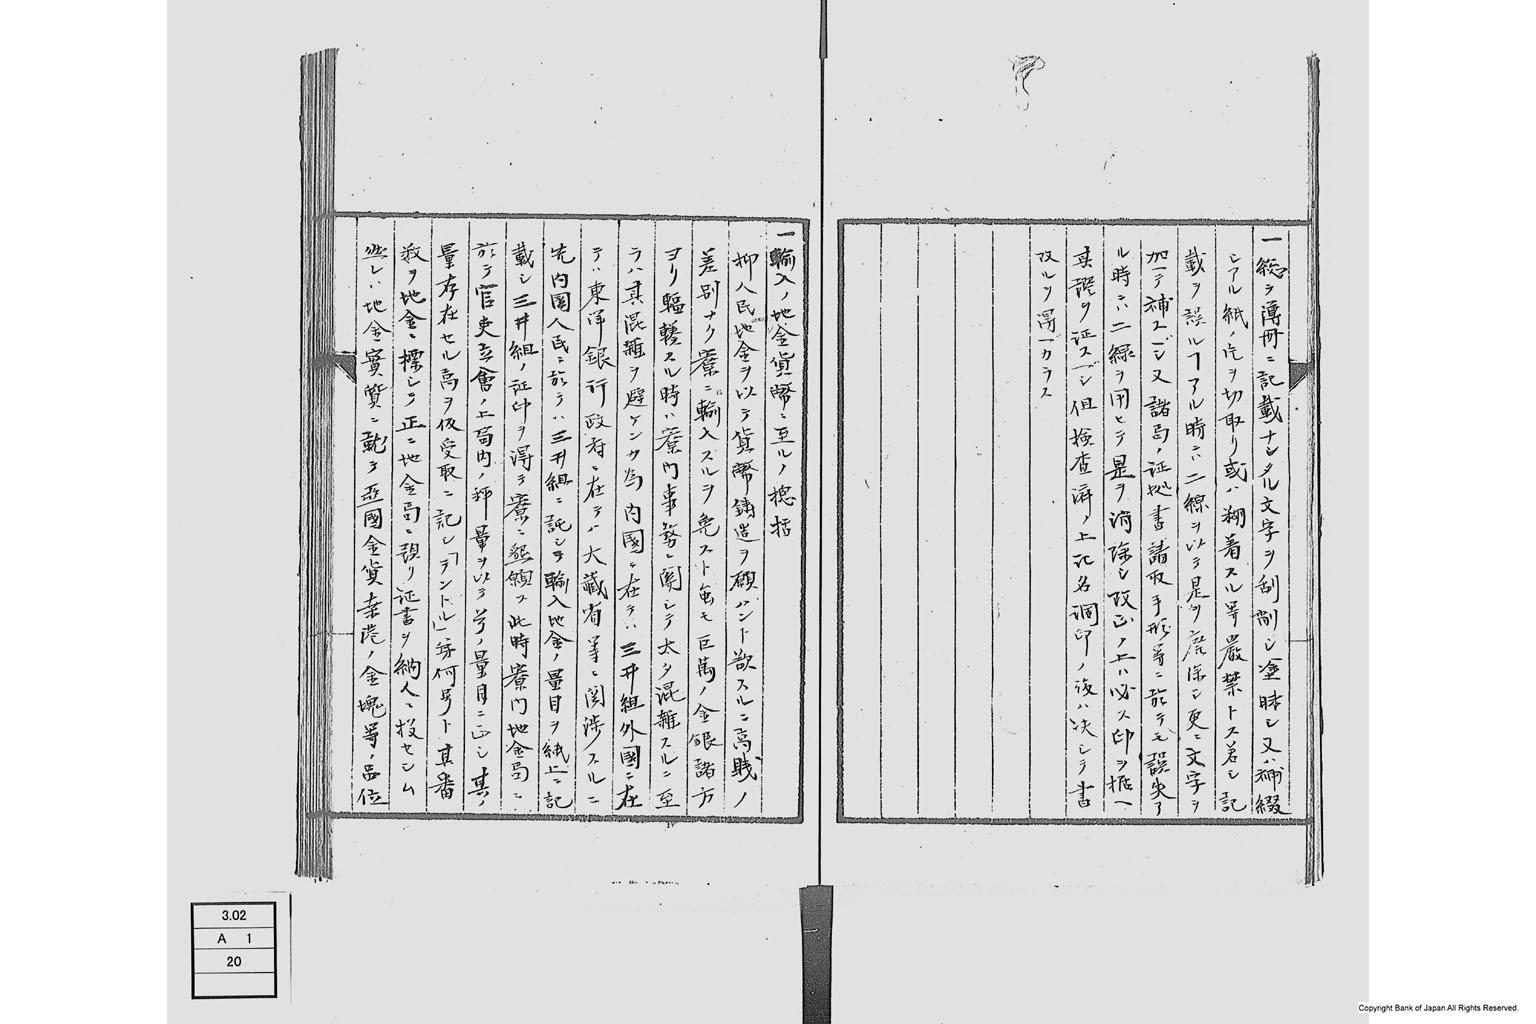 一総テ簿冊ニ記載ナシタル文字ヲ刮削シ塗抹シ又ハ補綴
シアル紙ノ片ヲ切取リ或ハ糊着スル等嚴禁トス若シ記
載ヲ誤ルヿアル時ハ二線ヲ以テ是ヲ廃除シ更ニ文字ヲ
加ヘテ補スベシ又諸局ノ証拠書請取手形等ニ於テモ誤失了
ル時ハ二線ヲ用ヒテ是ヲ消除シ改正ノ上ハ必ス印ヲ据ヘ
其證ヲ証スベシ但検査済ノ上記名調印ノ後ハ决シテ書
改ルヲ得ベカラス
一輸入ノ地金貨幣ニ至ルノ総括
抑人民地金ヲ以テ貨幣鋳造ヲ願ハント欲スルニ高賎ノ
差別ナク寮ニ輸入スルヲ免スト𧈧モ巨萬ノ金銀諸方
ヨリ輻輳スル時ハ寮内事務ニ関シテ太タ混雑スルニ至
ラハ其混雑ヲ避ケンカ為内國ニ在テハ三井組外國ニ在
テハ東洋銀行政府ニ在テハ大藏省等ニ関渉スルニ
先内國人民ニ於テハ三井組ニ託シテ輸入地金ノ量目ヲ紙上ニ記
載シ三井組ノ証印ヲ得テ寮ニ懇願ス此時寮内地金局ニ
於テ官吏立會ノ上局内ノ秤量ヲ以テ号ノ量目ニ正シ其ノ
量存在セル高ヲ仮受取ニ記シ「テントル」第何号ト其番
数ヲ地金ニ標シテ正ニ地金局ニ預リ証書ヲ納人ニ投セシム
然レハ地金實質ニ就テ亜國金貨ノ金塊等ノ品位
3.02
A 1
20
Copyright Bank of Japan All Rights Reserved.